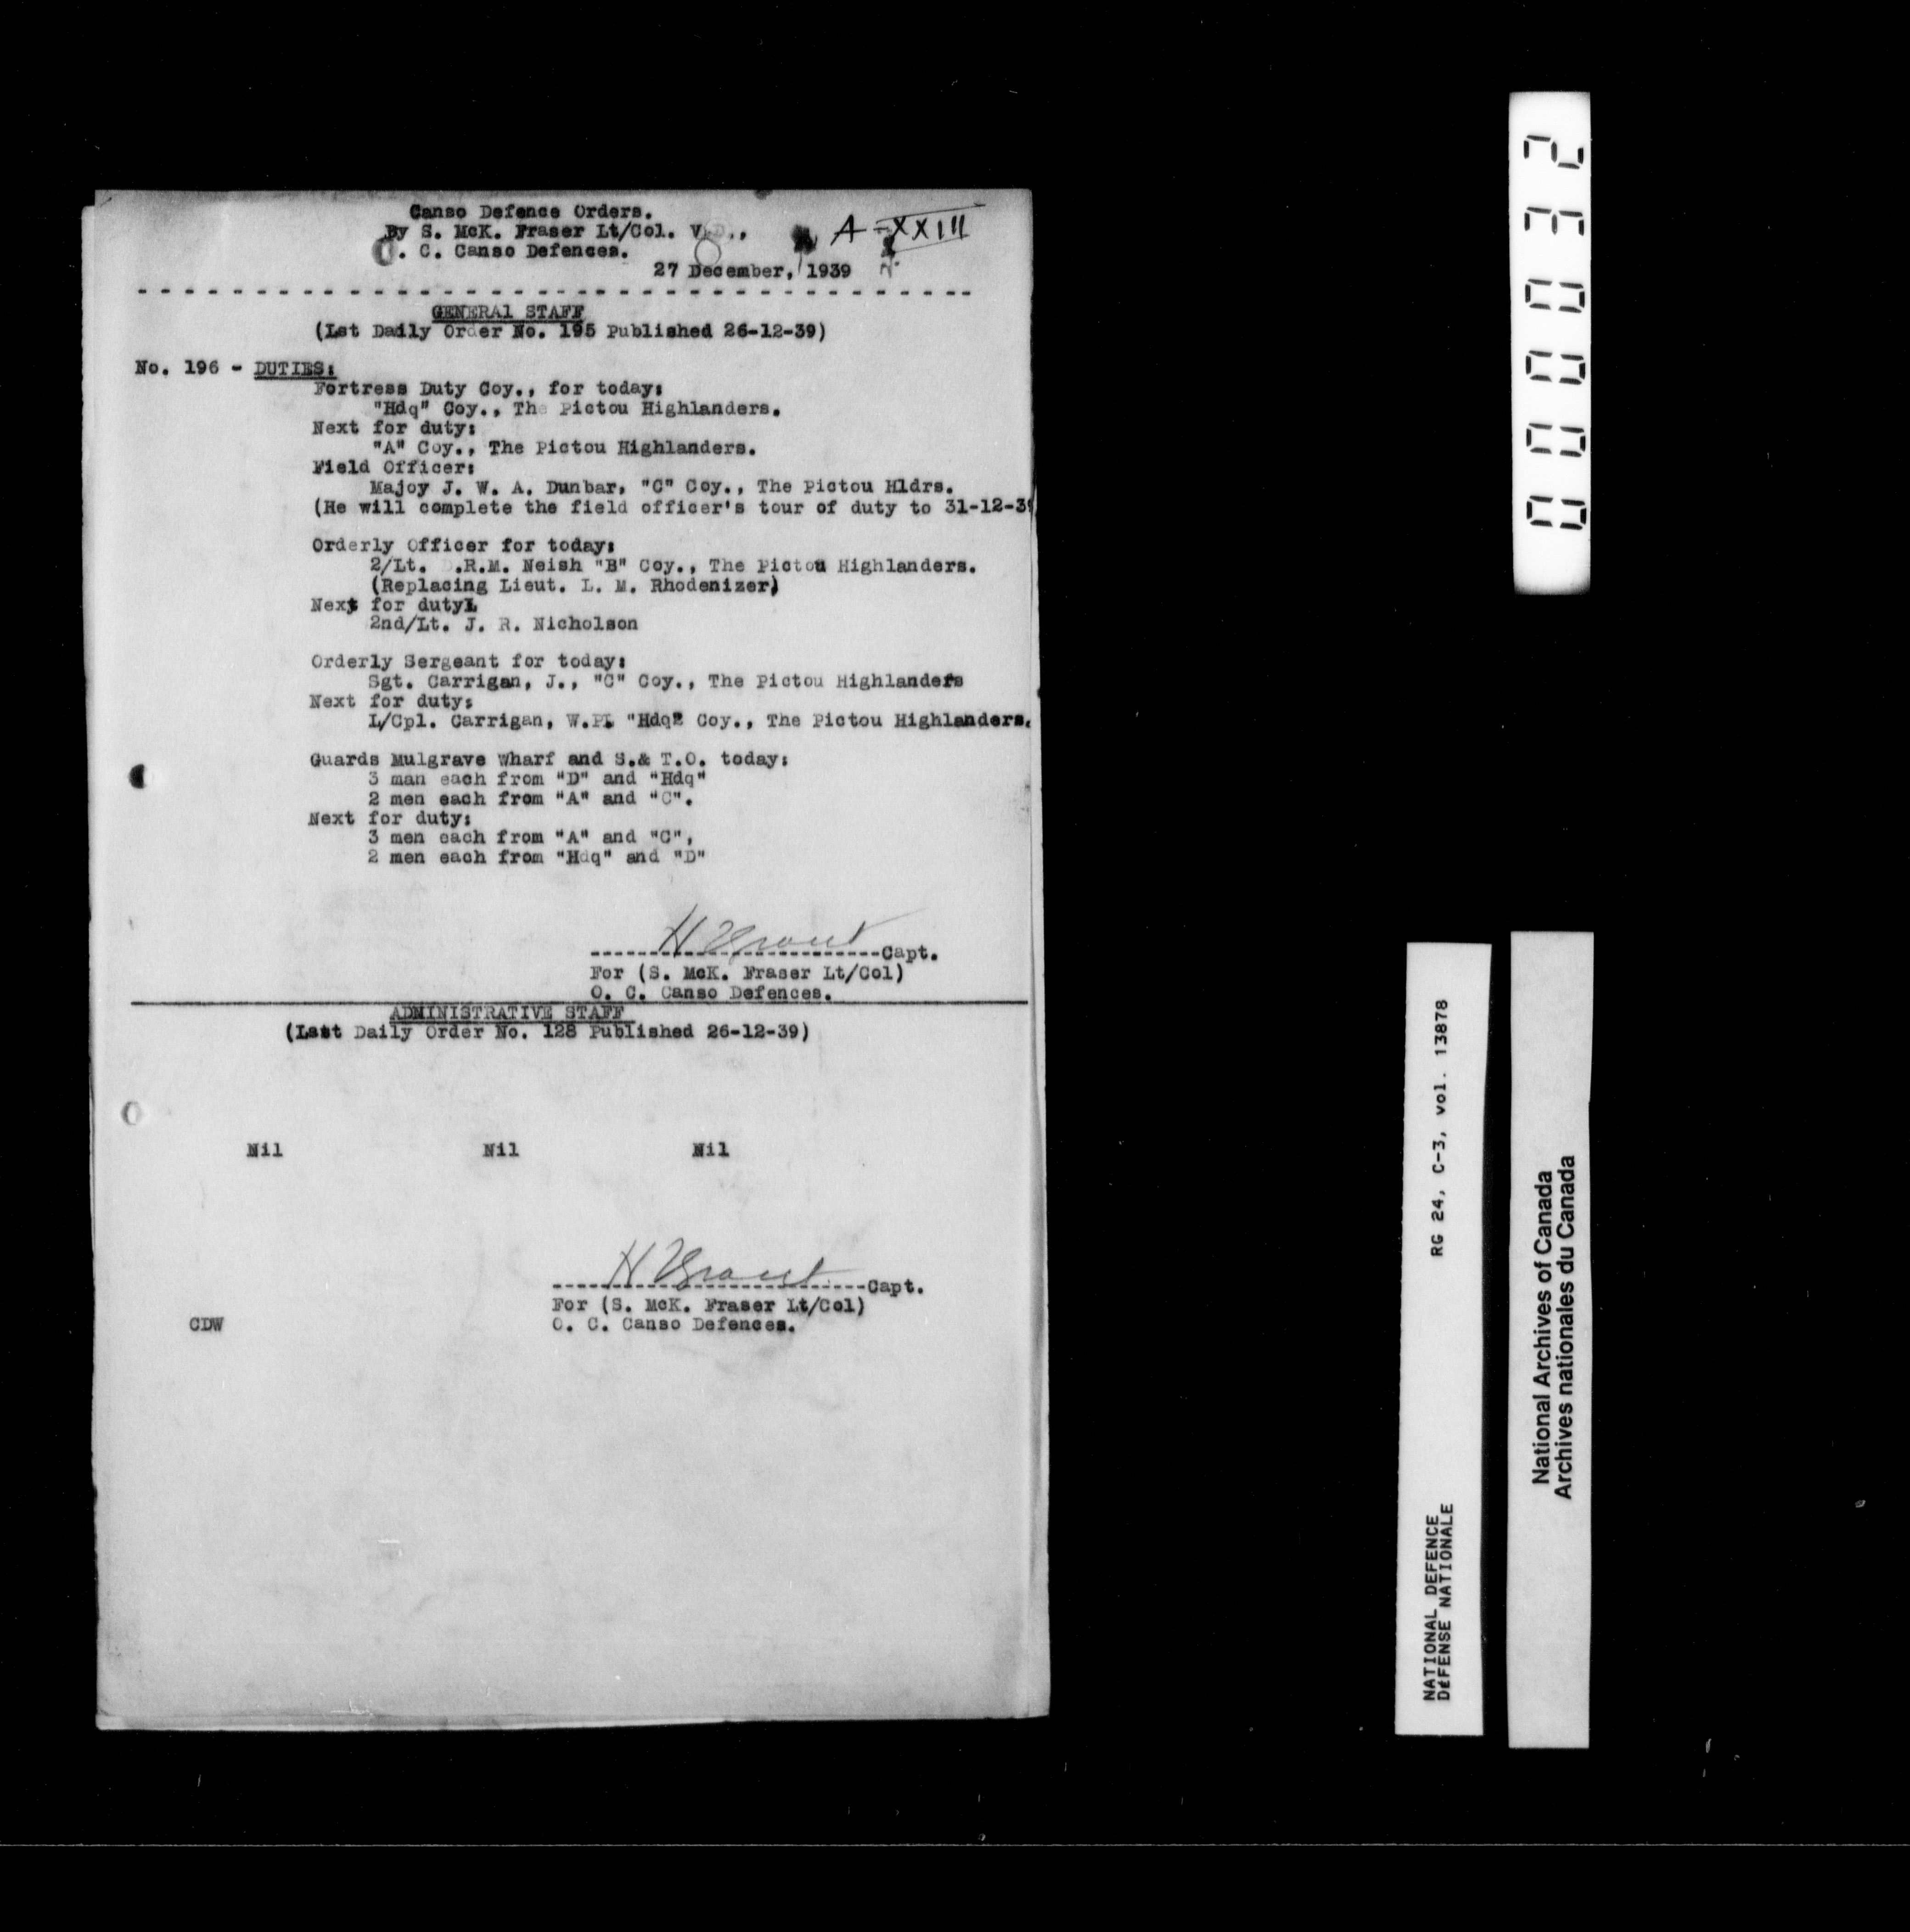 Canso Defence Orders.
By S. McK. Fraser Lt/Col. V.D.,
O. C. Canso Defences.
A-XXIII
27 December, 1939
GENERAl STAFF
(Lst Daily Order No. 195 Published 26-12-39)
No. 196 - DUTIES:
Fortress Duty Coy., for today:
"Hdq" Coy., The Pictou Highlanders.
Next for duty:
"A" Coy., The Pictou Highlanders.
Field Officer:
Majoy J. W. A. Dunbar, "C" Coy., The Pictou Hldrs.
(He will complete the field officer's tour of duty to 31-12-39
Orderly Officer for today:
2/Lt. D.R.M. Neish "B" Coy., The Pictou Highlanders.
(Replacing Lieut. L. M. Rhodenizer)
Next for dutyL
2nd/Lt. J. R. Nicholson
Orderly Sergeant for today:
Sgt. Carrigan, J., "C" Coy., The Pictou Highlanders
Next for duty:
L/Cpl. Carrigan, W.PL "Hdq" Coy., The Pictou Highlanders.
Guards Mulgrave Wharf and S.& T.O. today:
3 man each from "D" and "Hdq"
2 men each from "A" and "C".
Next for duty:
3 men each from "A" and "C",
2 men each from "Hdq" and "D"
H Grant
Capt.
For (S. McK. Fraser Lt/Col)
O. C. Canso Defences.
ADMINISTRATIVE STAFF
(Last Daily Order No. 128 Published 26-12-39)
Nil Nil Nil
H Grant
Capt.
For (S. McK. Fraser Lt/Col)
O. C. Canso Defences.
CDW
000032
RG 24, C-3, vol. 13878
NATIONAL DEFENCE
DÉFENSE NATIONALE
National Archives of Canada
Archives nationales du Canada